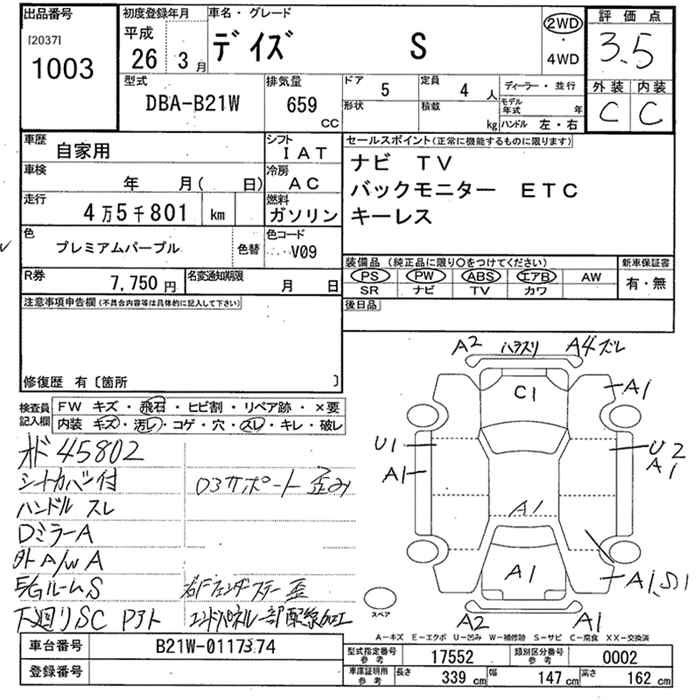 出品番号
[2037]
1003
初度登録年月
平成
26 3月
車名・グレード
デイズ S
2WD
・
4WD
評価点
3.5
外装 内装
C C
型式
DBA-B21W
排気量
659
cc
ドア
5
定員
4 人
ディーラー・並行
形状
積載
kg
モデル年式 年
ハンドル 左・右
車歴
自家用
シフト
IAT
車検
年 月( 日)
冷房
AC
走行
4万5千801 km
燃料
ガソリン
色
プレミアムパープル
色替
色コード
V09
R券
7,750円
名変通知期限
月 日
セールスポイント(正常に機能するものに限ります)
ナビ TV
バックモニター ETC
キーレス
装備品(純正品に限り○をつけてください)
PS PW ABS エアB AW
SR ナビ TV カワ
新車保証書
有・無
後日品
注意事項申告欄(不具合内容等は具体的に記入して下さい)
修復歴 有〔箇所 〕
検査員記入欄
FW キズ・飛石・ヒビ割・リペア跡・×要
内装 キズ・汚レ・コゲ・穴・スレ・キレ・破レ
オド45802
シートカバー付
D3サポート歪み
ハンドルスレ
DミラーA
外A/WA
E/GルームS
右Fフェンダーステー歪
下廻りSC Pアト
エンドパネル一部配線加工
A2 ハラスリ A4ズレ
C1
A1
U1
A1
U2
A1
A1
A1
A1,S1
A2
A1
スペア
A-キズ E-エクボ U-凹み W-補修跡 S-サビ C-腐食 XX-交換済
車台番号
B21W-0117374
登録番号
型式指定番号 参考
17552
類別区分番号 参考
0002
車庫証明用 参考
長さ 339 cm
幅 147 cm
高さ 162 cm